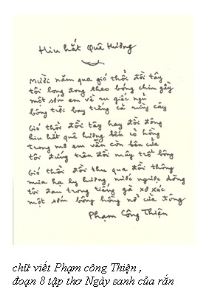 Hiu hắt Quê Hương
Mười năm qua gió thổi đồi tây
tôi long đong theo bóng chim gầy
một sớm em về ru giấc ngủ
bông trời bay trắng cả rừng cây
gió thổi đồi tây hay đồi đông
hiu hắt quê hương bến cỏ hồng
trong mơ em vẫn còn bên cửa
tôi đứng trên đồi mây trổ bông
gió thổi đồi thu qua đồi thông
mưa hạ ly hương nước ngược dòng
tôi đau trong tiếng gà xơ xác
một sớm bông hồng nở cửa đông
Phạm Công Thiện
chữ viết Phạm công Thiện ,
đoạn 8 tập thơ Ngày sanh của rắn